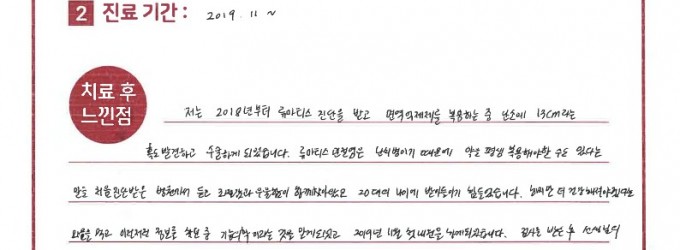 2 진료 기간 : 2019. 11 ~
치료 후
느낀점
저는 2018년부터 류마티스 진단을 받고 면역억제제를 복용하는 중 난소에 13cm라는
혹도 발견하고 수술하게 되었습니다. 류마티스 관절염은 난치병이기 때문에 약을 평생 복용해야할 수도 있다는
말도 처음 진단받은 병원에서 듣고 20대의 나이에 받아들이기 힘들었습니다. 하지만 더 건강해져야
마음을 먹고 정보를 찾던 중 것을 알게되었고 2019년 11월 첫 내원을 하게되었습니다. 검사를 받은 후 선생님의